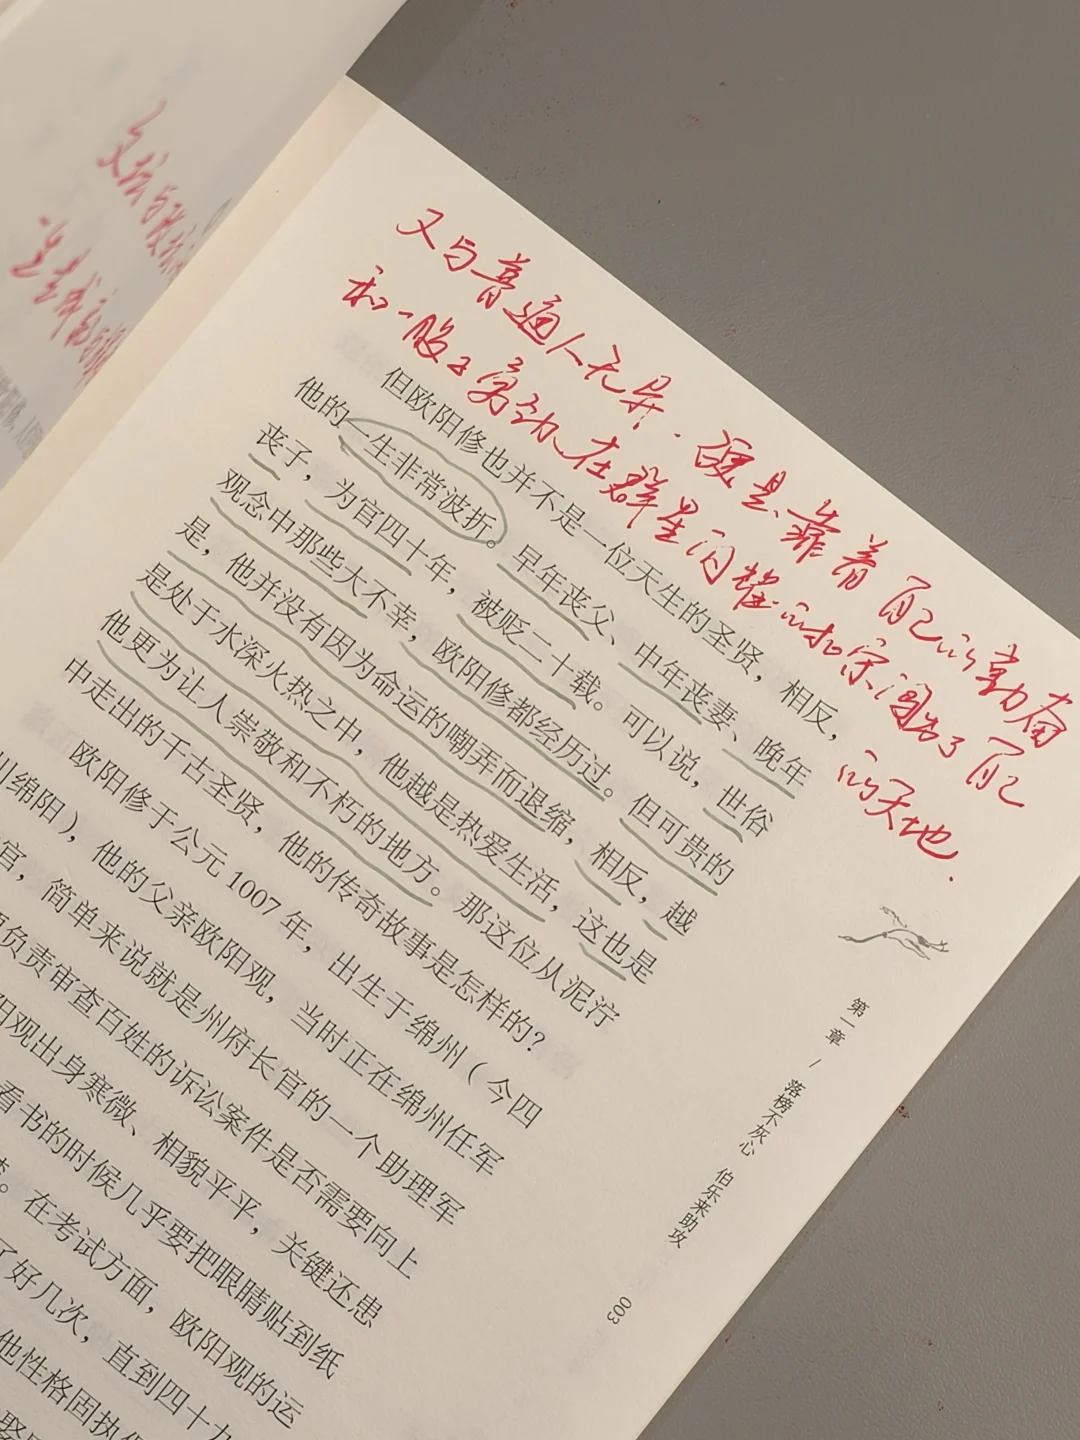 又与普通人无异。硬是靠着自己的勤奋
和一股子窮劲在群星闪耀的北宋闯出了自己
的天地.
但欧阳修也并不是一位天生的圣贤，相反，
他的一生非常波折。早年丧父、中年丧妻、晚年
丧子，为官四十年，被贬二十载。可以说，世俗
观念中那些大不幸，欧阳修都经历过。但可贵的
是，他并没有因为命运的嘲弄而退缩，相反，越
是处于水深火热之中，他越是热爱生活，这也是
他更为让人崇敬和不朽的地方。那这位从泥泞
中走出的千古圣贤，他的传奇故事是怎样的？
欧阳修于公元1007年，出生于绵州（今四
川绵阳），他的父亲欧阳观，当时正在绵州任军
官，简单来说就是州府长官的一个助理军
负责审查百姓的诉讼案件是否需要向上
阳观出身寒微、相貌平平，关键还患
看书的时候几乎要把眼睛贴到纸
。在考试方面，欧阳观的运
了好几次，直到四十九
他性格固执
第一章 / 落榜不灰心 伯乐来助攻
003